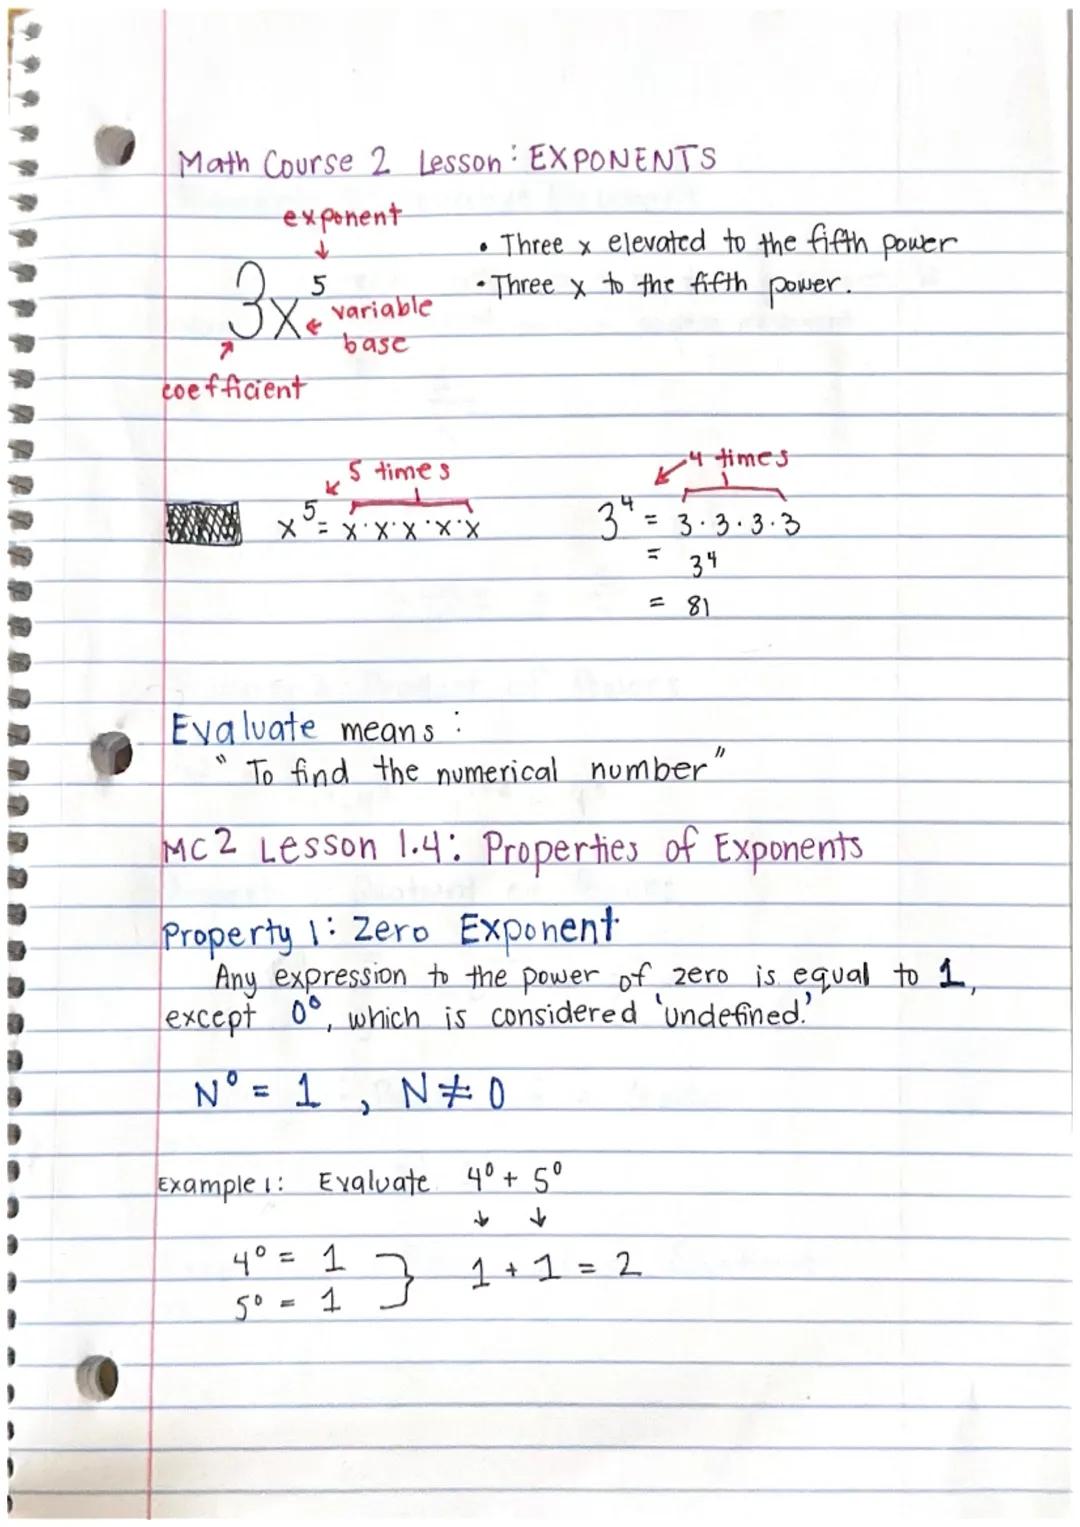 Math Course 2 Lesson: EXPONENTS
exponent
3x⁵
variable
base
coefficient
• Three x elevated to the fifth power
• Three x to the fifth power.
5 times
x⁵ = x·x·x·x·x
4 times
3⁴ = 3·3·3·3
= 3⁴
= 81
Evaluate means:
"To find the numerical number"
MC2 Lesson 1.4: Properties of Exponents
Property 1: Zero Exponent
Any expression to the power of zero is equal to 1,
except 0⁰, which is considered 'undefined.'
N⁰ = 1, N ≠ 0
Example 1: Evaluate 4⁰ + 5⁰
4⁰ = 1
5⁰ = 1
1 + 1 = 2